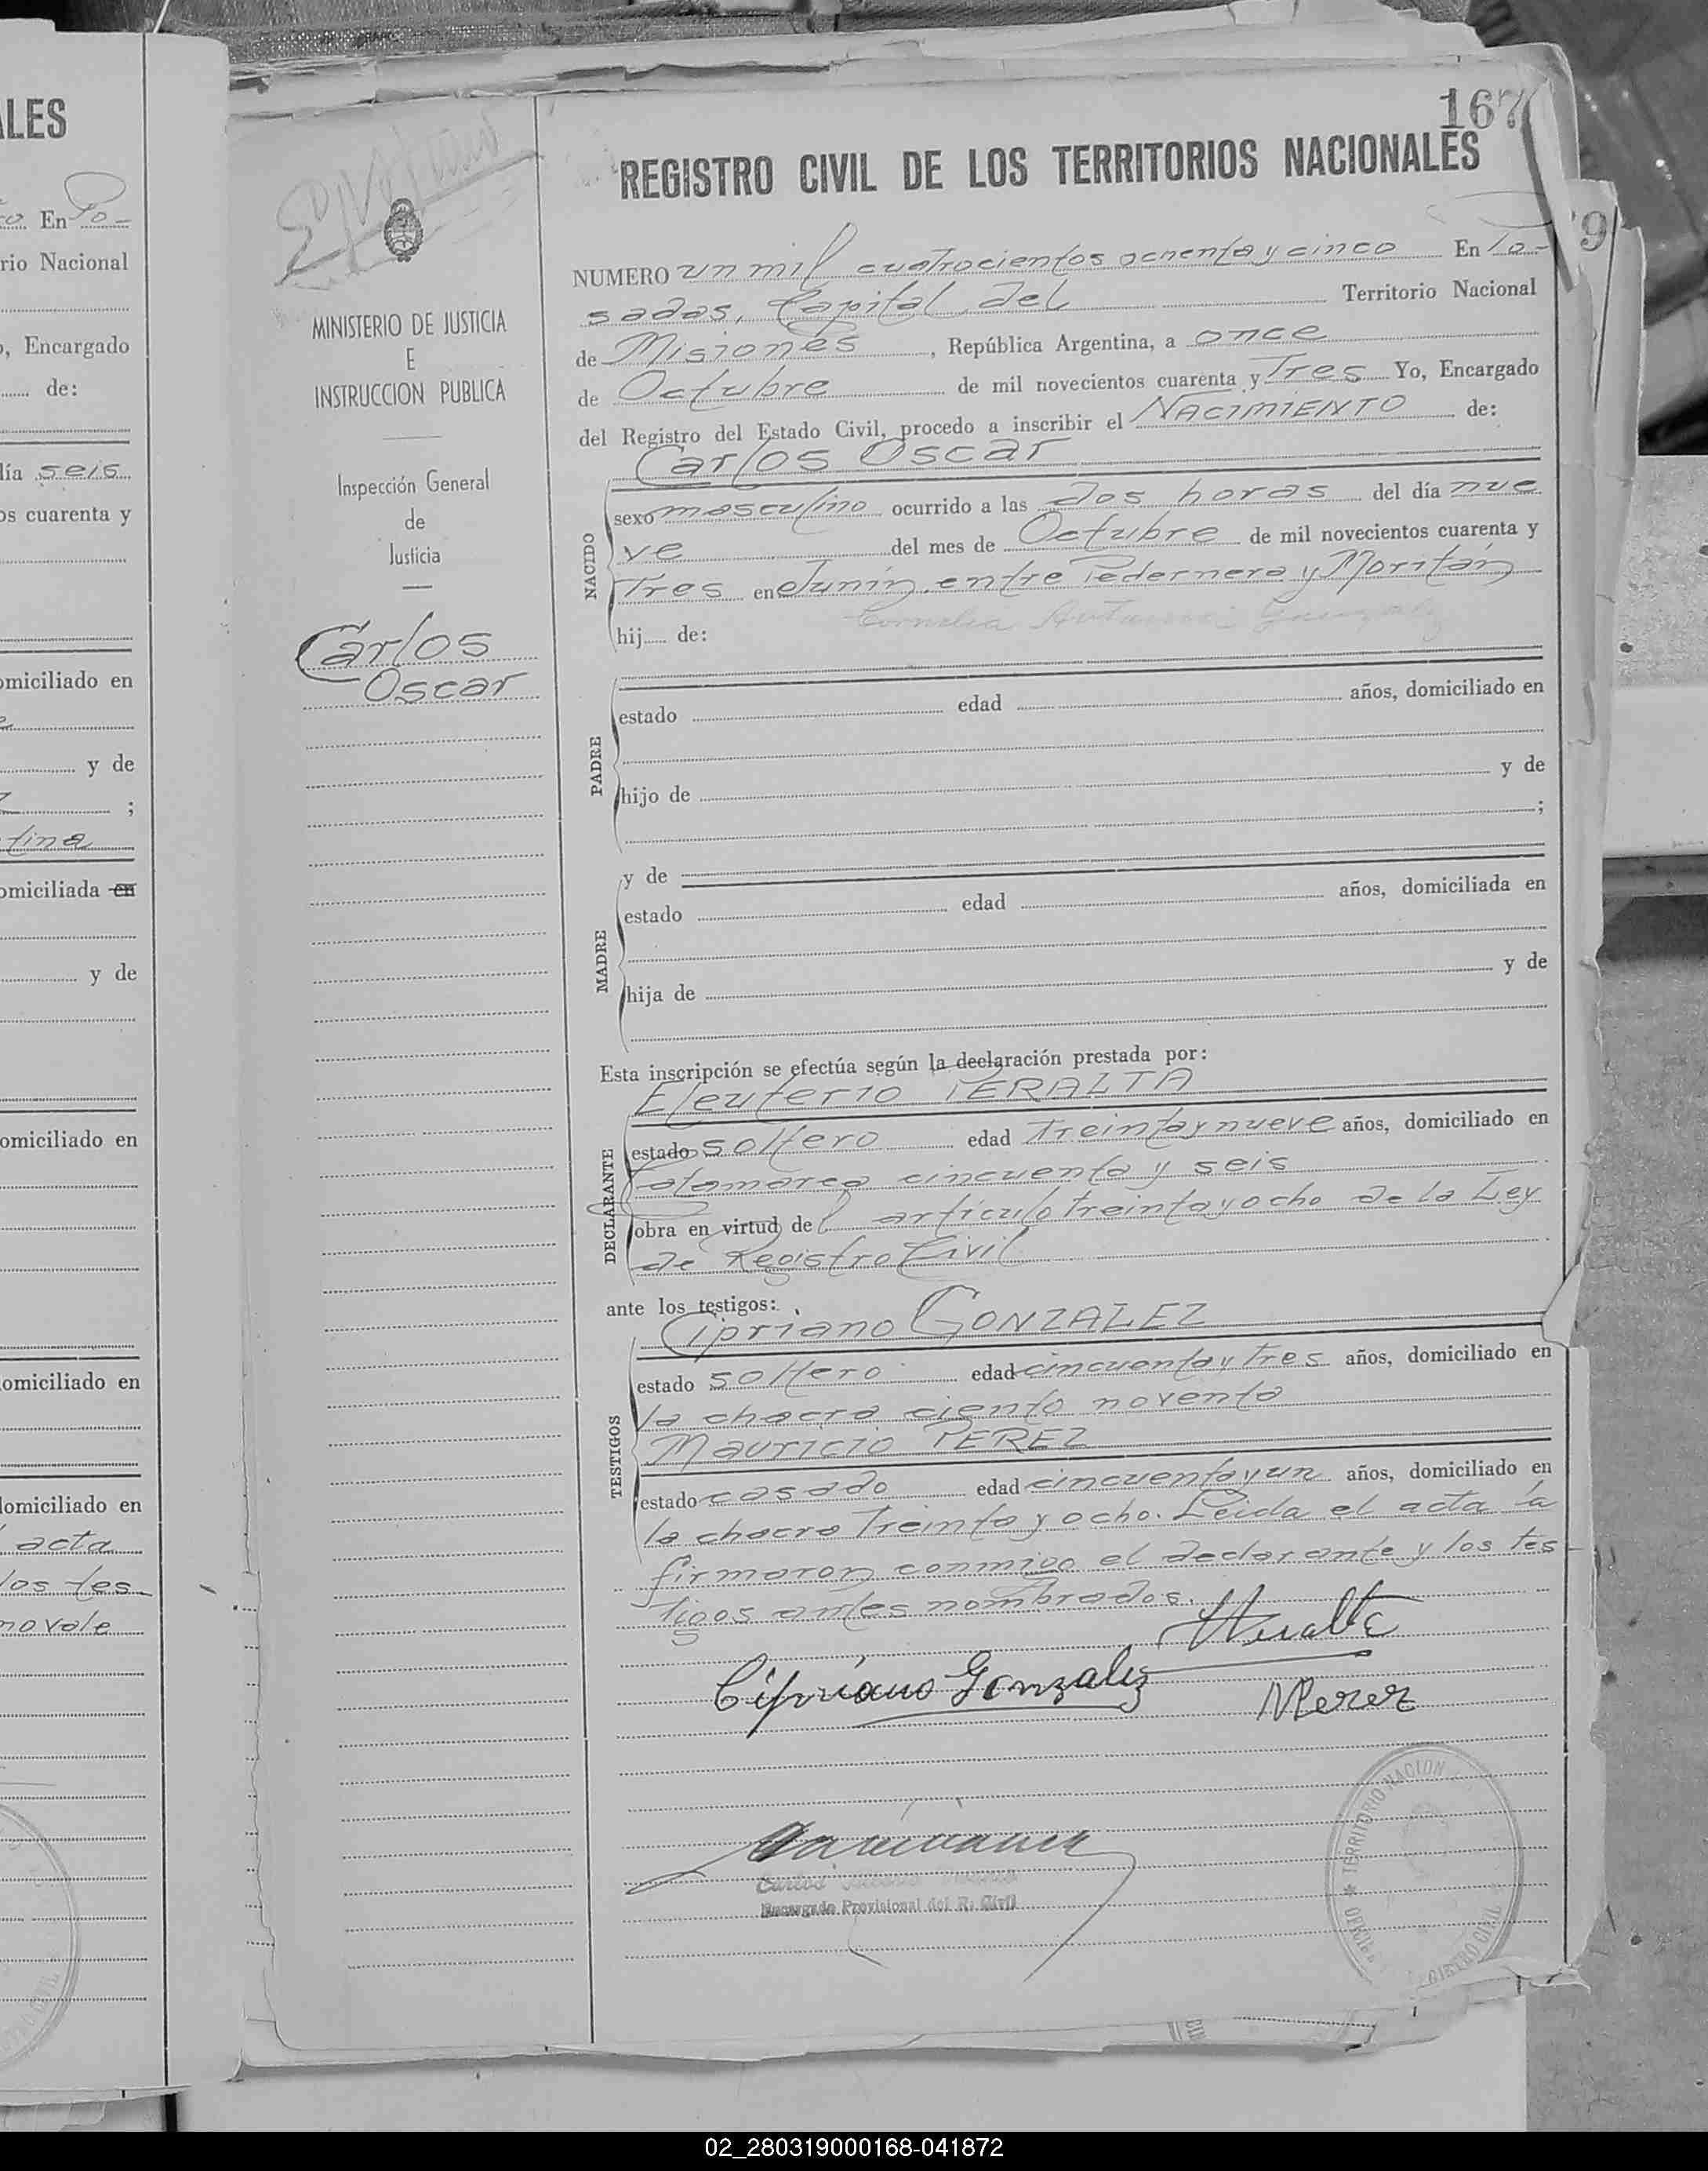 ALES
ro En Po-
rio Nacional
o, Encargado
de:
día seis
os cuarenta y
omiciliado en
y de
;
tina
omiciliada en
y de
omiciliado en
omiciliado en
domiciliado en
acta
los tes
no vale
167
9
REGISTRO CIVIL DE LOS TERRITORIOS NACIONALES
MINISTERIO DE JUSTICIA
E
INSTRUCCION PUBLICA
Inspección General
de
Justicia
Carlos
Oscar
NUMERO un mil cuatrocientos ochenta y cinco En Po-
sadas, Capital del Territorio Nacional
de Misiones, República Argentina, a once
de Octubre de mil novecientos cuarenta y Tres Yo, Encargado
del Registro del Estado Civil, procedo a inscribir el NACIMIENTO de:
Carlos Oscar
NACIDO
sexo masculino ocurrido a las dos horas del día nue
ve del mes de Octubre de mil novecientos cuarenta y
Tres en Junín entre Pedernera y Moritán
hij de: Cornelia Antonia
PADRE
estado edad años, domiciliado en
hijo de y de
;
y de
MADRE
estado edad años, domiciliada en
hija de y de
Esta inscripción se efectúa según la declaración prestada por:
Eleuterio PERALTA
DECLARANTE
estado soltero edad Treinta y nueve años, domiciliado en
Catamarca cincuenta y seis
obra en virtud del artículo treinta y ocho de la Ley
de Registro Civil
ante los testigos:
Cipriano GONZALEZ
TESTIGOS
estado soltero edad cincuenta y Tres años, domiciliado en
la chacra ciento noventa
Mauricio PEREZ
estado casado edad cincuenta y un años, domiciliado en
la chacra Treinta y ocho. Leida el acta la
firmaron conmigo el declarante y los tes
tigos antes nombrados.
Cipriano Gonzalez
MPerez
Encargado Provisional del R. Civil
TERRITORIO NACION
REGISTRO CIVIL
02_280319000168-041872